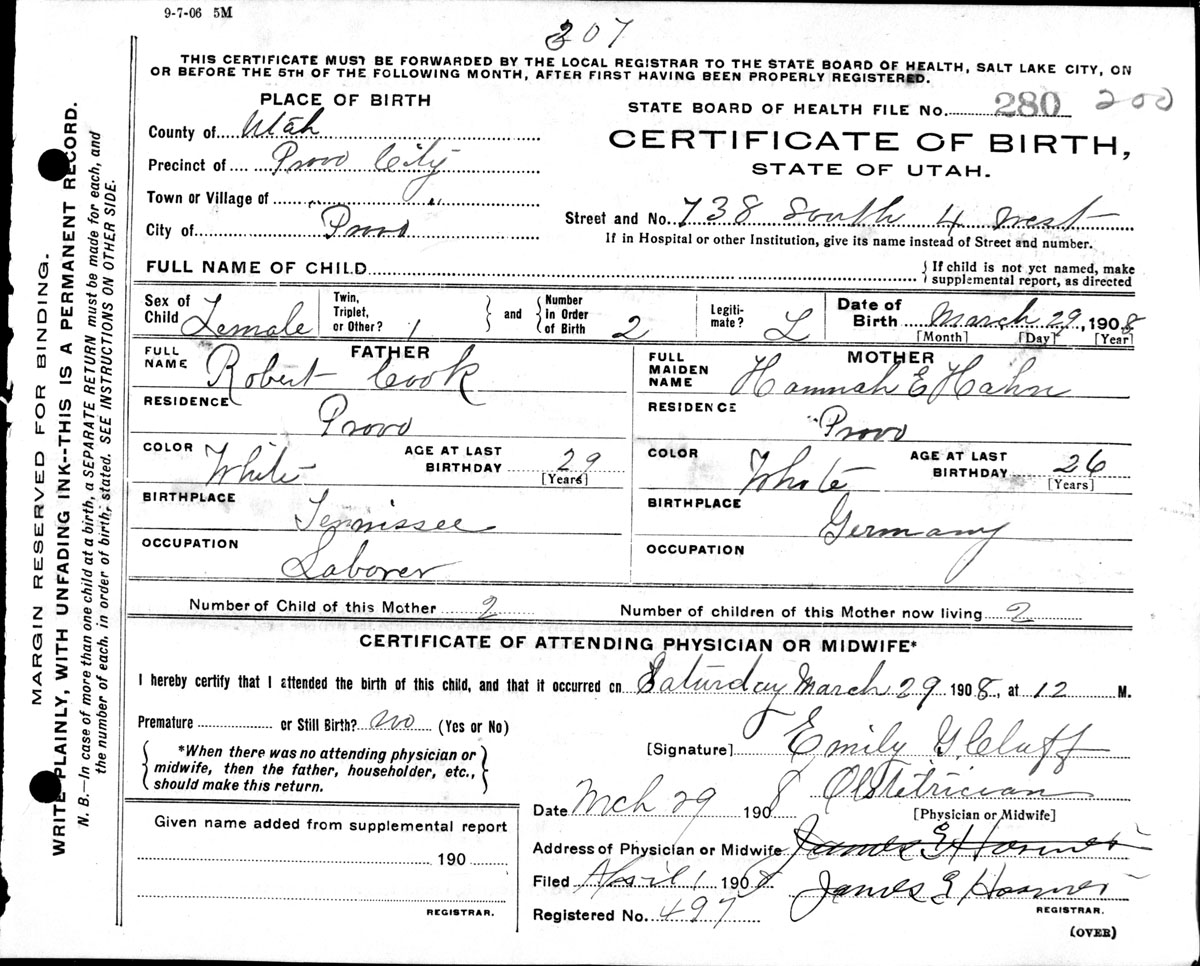 9-7-06 5M
207
THIS CERTIFICATE MUST BE FORWARDED BY THE LOCAL REGISTRAR TO THE STATE BOARD OF HEALTH, SALT LAKE CITY, ON
OR BEFORE THE 5TH OF THE FOLLOWING MONTH, AFTER FIRST HAVING BEEN PROPERLY REGISTERED.
PLACE OF BIRTH
STATE BOARD OF HEALTH FILE No. 280 200
County of Utah
CERTIFICATE OF BIRTH,
Precinct of Provo City
STATE OF UTAH.
Town or Village of " "
Street and No. 738 South 4 West
City of Provo
If in Hospital or other Institution, give its name instead of Street and number.
FULL NAME OF CHILD
{ If child is not yet named, make
supplemental report, as directed
Sex of Child Female
Twin, Triplet, or Other? 1
and
Number in Order of Birth 2
Legiti-mate? L
Date of Birth March 29, 1908
[Month] [Day] [Year]
FATHER
FULL NAME Robert Cook
RESIDENCE Provo
COLOR White
AGE AT LAST BIRTHDAY 29
[Years]
BIRTHPLACE Tennissee
OCCUPATION Laborer
MOTHER
FULL MAIDEN NAME Hannah E Hahn
RESIDENCE Provo
COLOR White
AGE AT LAST BIRTHDAY 26
[Years]
BIRTHPLACE Germany
OCCUPATION
Number of Child of this Mother 2
Number of children of this Mother now living 2
CERTIFICATE OF ATTENDING PHYSICIAN OR MIDWIFE*
I hereby certify that I attended the birth of this child, and that it occurred on Saturday March 29 1908, at 12 M.
Premature or Still Birth? no (Yes or No)
*When there was no attending physician or
midwife, then the father, householder, etc.,
should make this return.
[Signature] Emily G. Cluff
Obstetrician
Date Mch 29 1908
[Physician or Midwife]
Given name added from supplemental report
190
REGISTRAR.
Address of Physician or Midwife
Filed April 1 1908
James E
REGISTRAR.
Registered No. 497
(OVER)
MARGIN RESERVED FOR BINDING.
WRITE PLAINLY, WITH UNFADING INK--THIS IS A PERMANENT RECORD.
N. B.—In case of more than one child at a birth, a SEPARATE RETURN must be made for each, and
the number of each, in order of birth, stated. SEE INSTRUCTIONS ON OTHER SIDE.